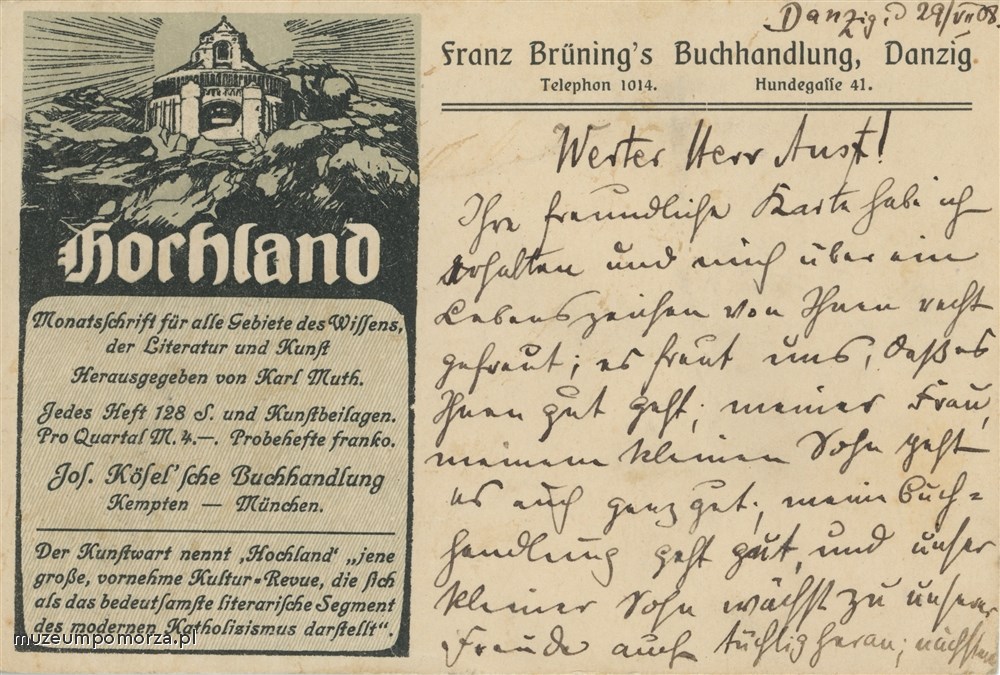 Hochland
Monatsschrift für alle Gebiete des Wissens,
der Literatur und Kunst
Herausgegeben von Karl Muth.
Jedes Heft 128 S. und Kunstbeilagen.
Pro Quartal M. 4.—. Probehefte franko.
Jos. Kösel'sche Buchhandlung
Kempten — München.
Der Kunstwart nennt ‚Hochland' „jene
große, vornehme Kultur-Revue, die sich
als das bedeutsamste literarische Segment
des modernen Katholizismus darstellt".
muzeumpomorza.pl
Danzig, d 29/VII 08.
Franz Brüning's Buchhandlung, Danzig
Telephon 1014. Hundegasse 41.
Werter Herr
Ihre freundliche Karte habe ich
erhalten und mich über ein
Lebenszeichen von Ihnen recht
gefreut; es freut uns, daß es
Ihnen gut geht; meiner Frau,
meinem kleinen Sohn geht
es auch ganz gut; meine Buch=
handlung geht gut, und unser
kleiner Sohn wächst zu unserer
Freude auch tüchtig heran; nächstens